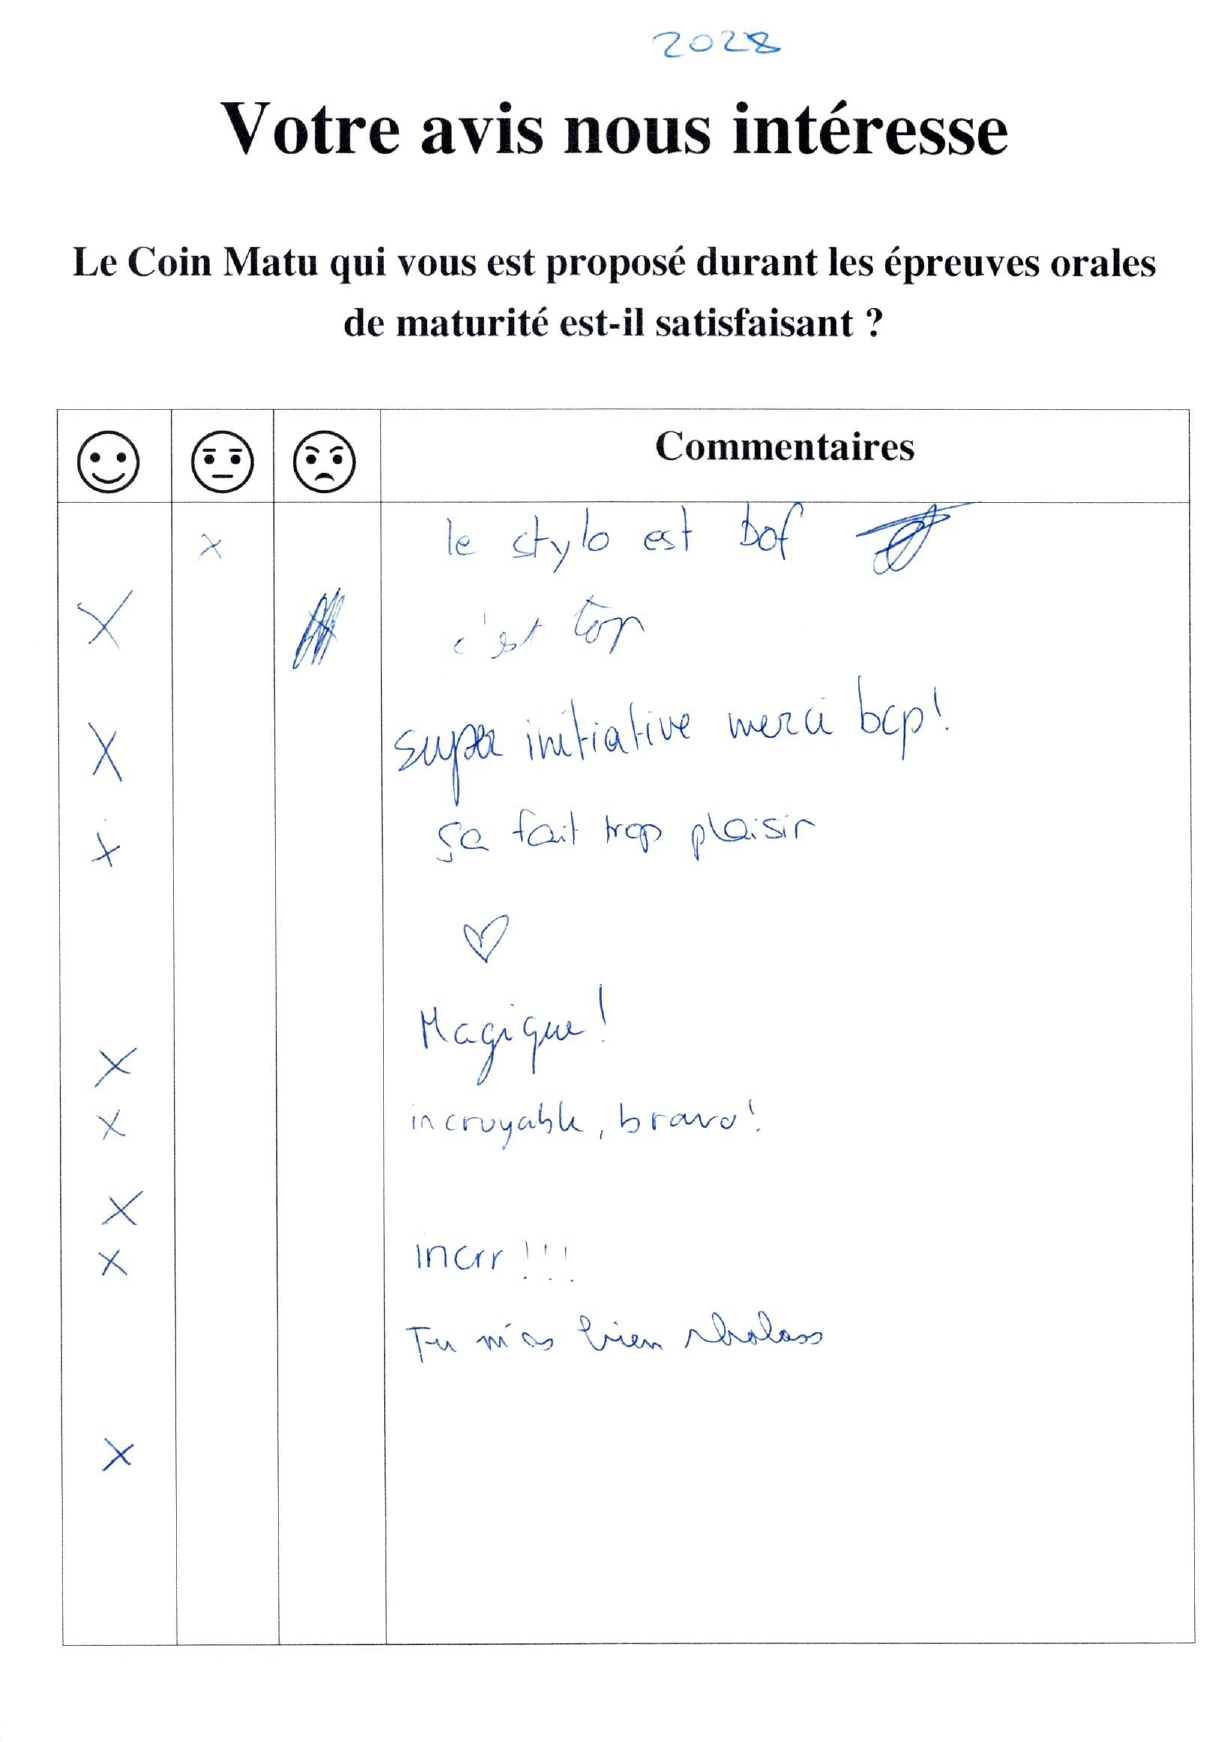 2028
Votre avis nous intéresse
Le Coin Matu qui vous est proposé durant les épreuves orales
de maturité est-il satisfaisant ?
Commentaires
x le stylo est bof
X c'est top
X super initiative merci bcp!
x ça fait trop plaisir
♡
Magique!
X
x incroyable, bravo!
X
x incrr !!!
Tu m'as bien
X